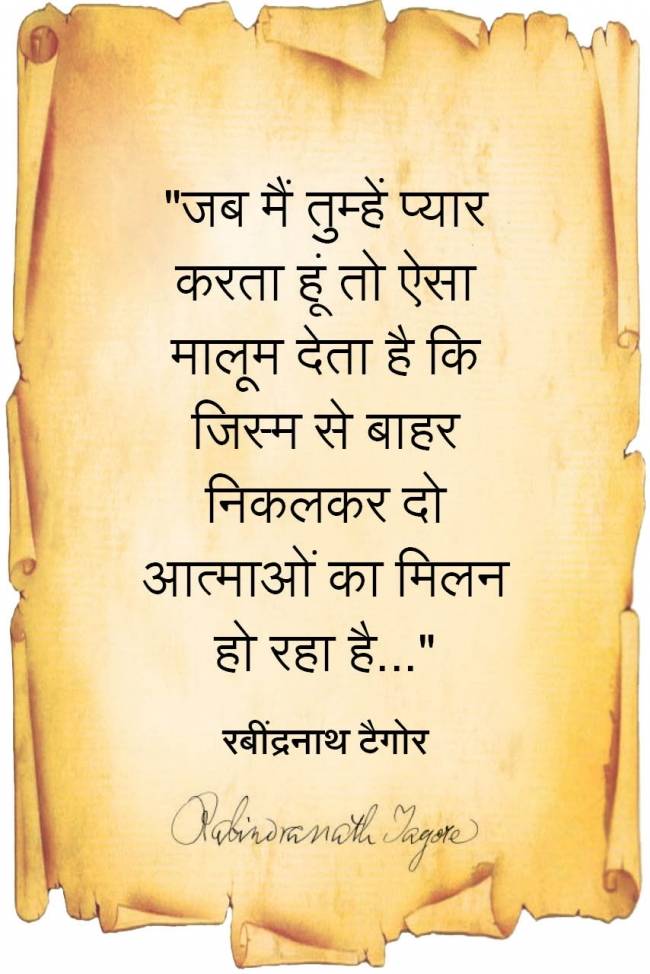 "जब मैं तुम्हें प्यार
करता हूं तो ऐसा
मालूम देता है कि
जिस्म से बाहर
निकलकर दो
आत्माओं का मिलन
हो रहा है..."
रबींद्रनाथ टैगोर
Rabindranath Tagore